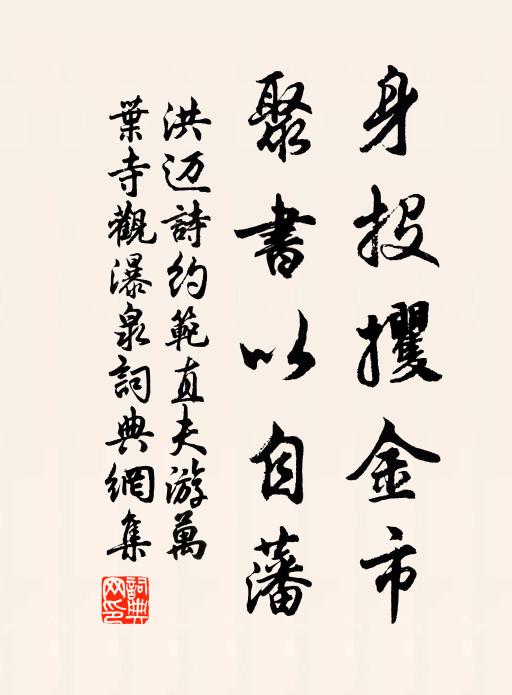 身投攫金市
聚書以自藩
洪迈詩約範直夫游萬
葉寺觀瀑泉詞典網集
詞典
网印